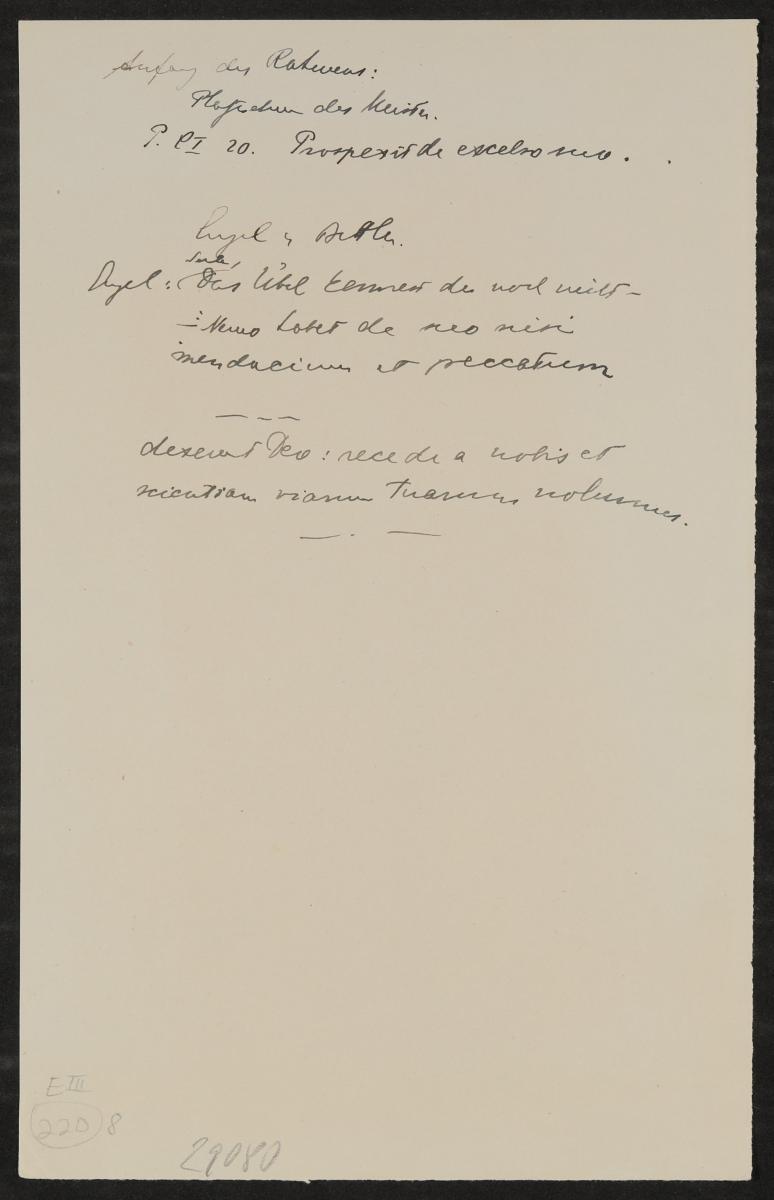 Anfang des
des Meisters.
P. CI 20. Prospexit de excelso suo.
Engel u Bettler.
Seele,
Engel: Das Übel kennest du noch nicht –
– : Nemo habet de suo nisi
mendacium et peccatum
dixerunt Deo: recede a nobis et
scientiam viarum tuarum nolumus.
E III
220 8
29080